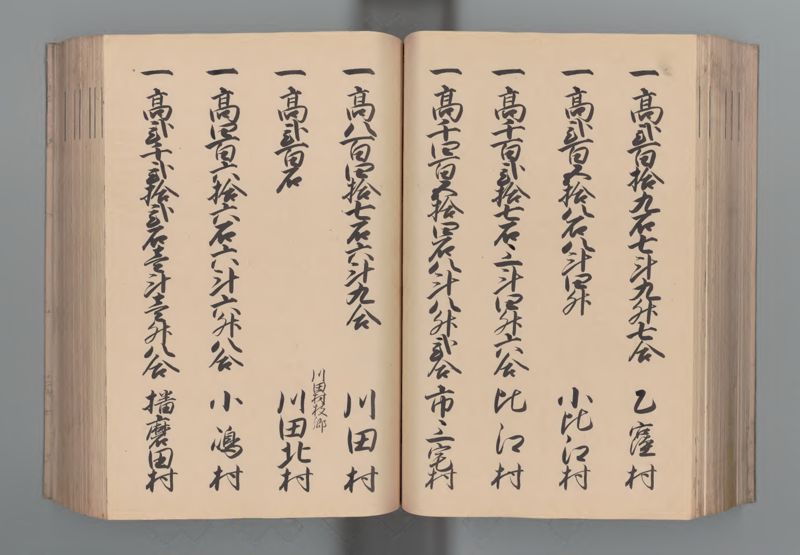 一高弐百拾九石七斗九升七合 乙窪村
一高弐百五拾八石八斗四升 小比江村
一高千百弐拾七石三斗四升六合 比江村
一高千四百五拾四石八斗八升弐合 市三宅村
一高八百四拾七石六斗九合 川田村
川田村枝郷
一高弐百石 川田北村
一高四百六拾六石六斗六升八合 小嶋村
一高弐千弐拾弐石壱斗壱升八合 播磨田村